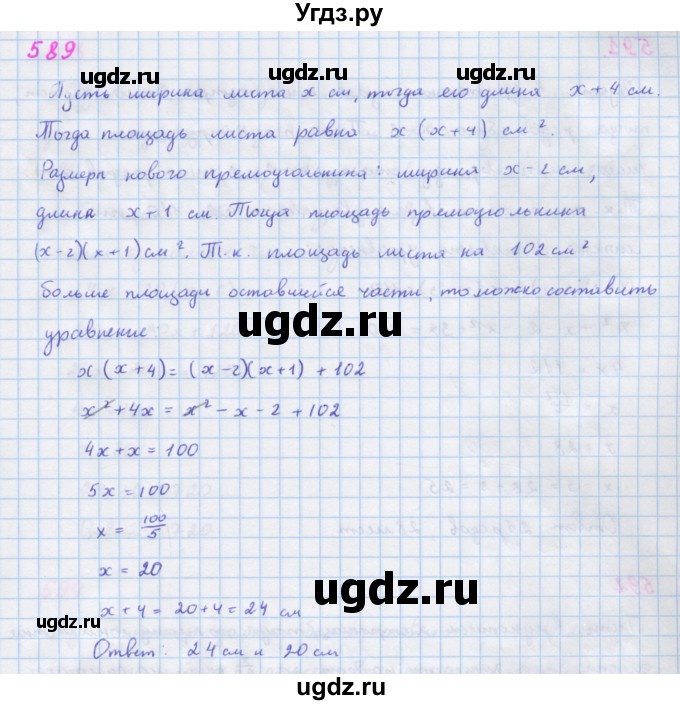 Угдз.ру
589
Пусть ширина листа x см, тогда его длина x + 4 см.
Тогда площадь листа равна x (x + 4) см².
Размеры нового прямоугольника: ширина x - 2 см,
длина x + 1 см. Тогда площадь прямоугольника
(x - 2)(x + 1) см². Т.к. площадь листа на 102 см²
больше площади оставшейся части, то можно составить
уравнение:
x (x + 4) = (x - 2)(x + 1) + 102
x² + 4x = x² - x - 2 + 102
4x + x = 100
5x = 100
x = 100/5
x = 20
x + 4 = 20 + 4 = 24 см
Ответ: 24 см и 20 см
ugdz.ru
ugdz.ru
ugdz.ru
ugdz.ru
ugdz.ru
ugdz.ru
ugdz.ru
ugdz.ru